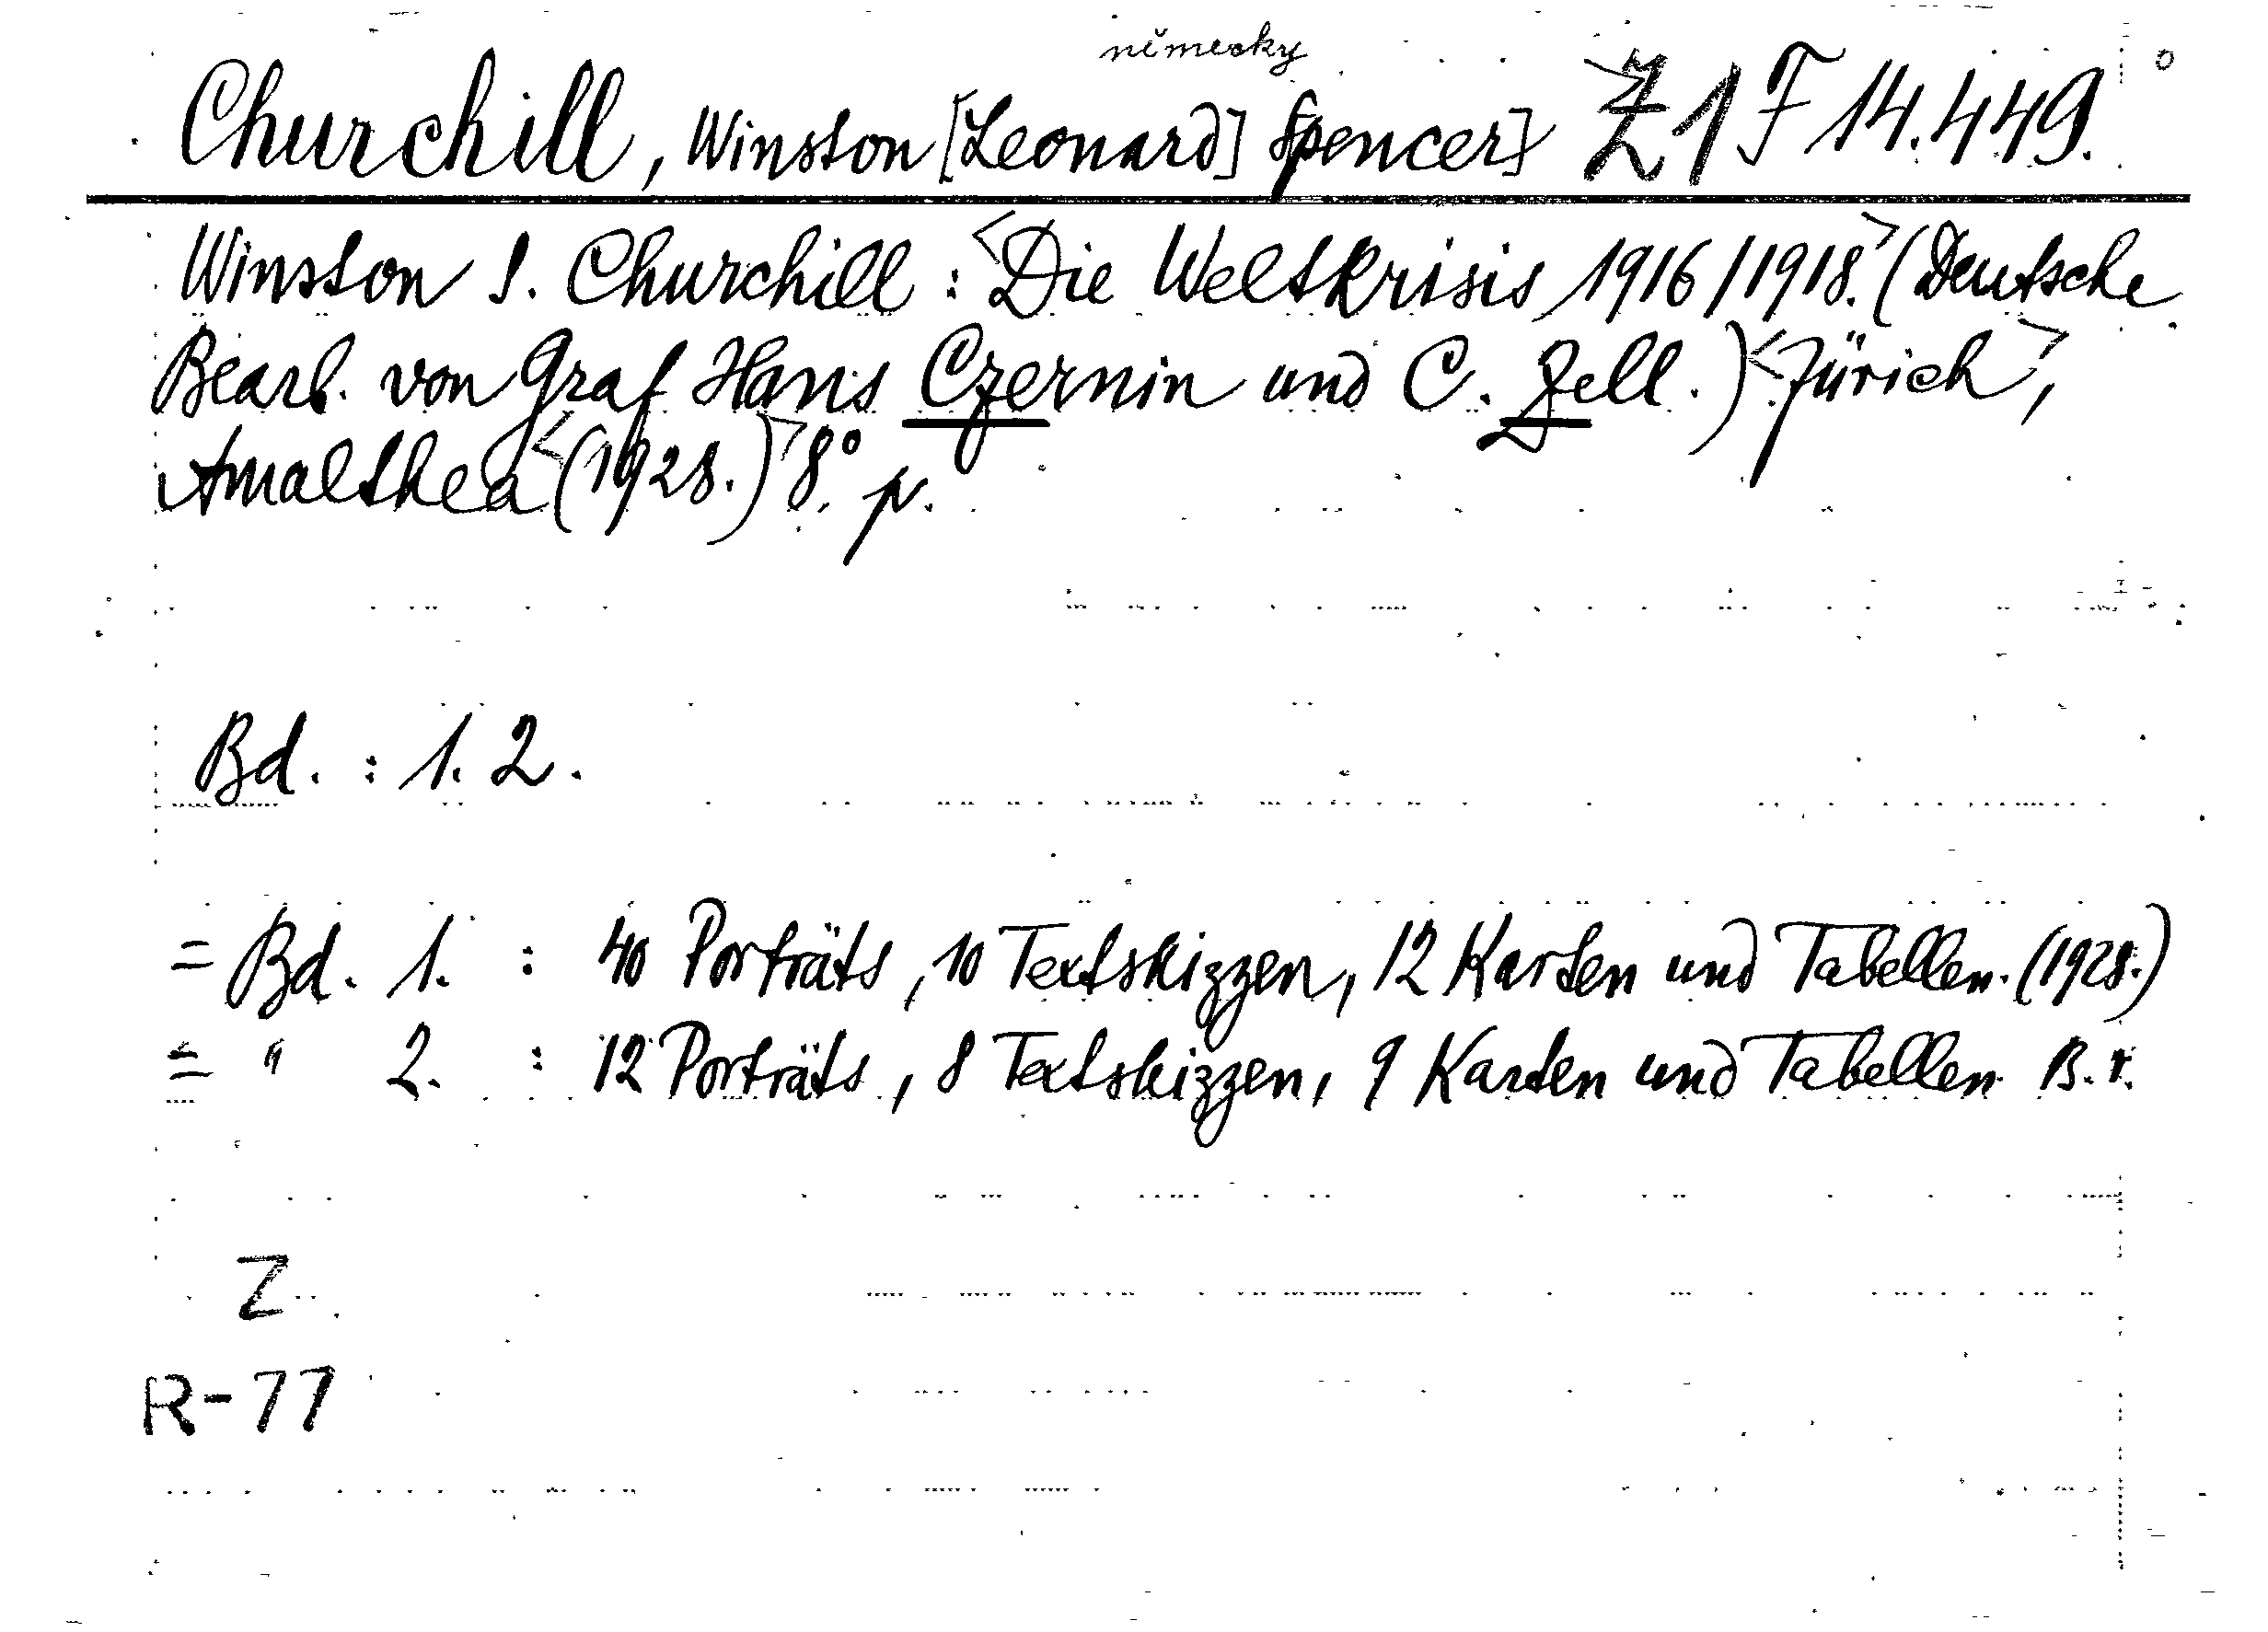 německy
Churchill, Winston [Leonard] Spencer] Z1 F 14.449.
Winston S. Churchill: <Die Weltkrisis 1916/1918.> (Deutsche
Bearb. von Graf Hans Czernin und C. Zell.) <Zürich>,
Amalthea <(1928.)> 8°. p.
Bd. : 1. 2.
= Bd. 1. : 40 Porträts, 10 Textskizzen, 12 Karten und Tabellen. (1928.)
= " 2. : 12 Porträts, 8 Textskizzen, 9 Karten und Tabellen B. r.
Z
R-77